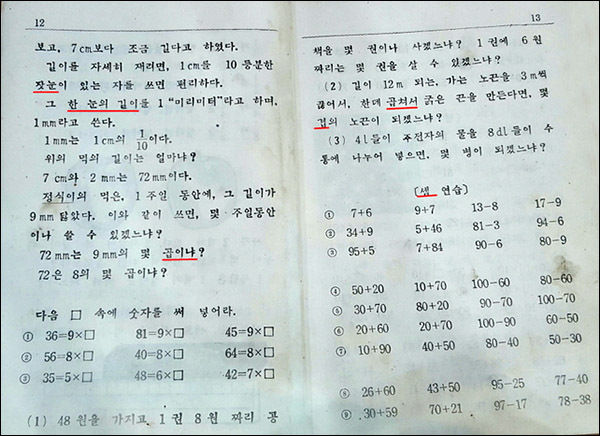 12
보고, 7cm보다 조금 길다고 하였다.
길이를 자세히 재려면, 1cm를 10 등분한
잣눈이 있는 자를 쓰면 편리하다.
그 한 눈의 길이를 1 "미리미터"라고 하며,
1mm라고 쓴다.
1mm는 1cm의 1/10이다.
위의 먹의 길이는 얼마냐?
7 cm와 2 mm는 72mm이다.
정식이의 먹은, 1 주일 동안에, 그 길이가
9mm 닳았다. 이와 같이 쓰면, 몇 주일동안
이나 쓸 수 있겠느냐?
72 mm는 9mm의 몇 곱이냐?
72은 8의 몇 곱이냐?
다음 □ 속에 숫자를 써 넣어라.
① 36=9×□ 81=9×□ 45=9×□
② 56=8×□ 40=8×□ 64=8×□
③ 35=5×□ 48=6×□ 42=7×□
(1) 48 원을 가지고 1 권 8 원 짜리 공
13
책을 몇 권이나 사겠느냐? 1 권에 6 원
짜리는 몇 권을 살 수 있겠느냐?
(2) 길이 12m 되는, 가는 노끈을 3m씩
끊어서, 한데 곱쳐서 굵은 끈을 만든다면, 몇
겹의 노끈이 되겠느냐?
(3) 4l들이 주전자의 물을 8dl들이 수
통에 나누어 넣으면, 몇 병이 되겠느냐?
[셈 연습]
① 7+6 9+7 13-8 17-9
② 34+9 5+46 81-3 94-6
③ 95+5 7+84 90-6 80-9
④ 50+20 10+70 100-60 80-60
⑤ 30+70 80+20 90-70 100-70
⑥ 20+60 20+70 100-90 60-50
⑦ 10+90 40+50 80-40 50-30
⑧ 26+60 43+50 95-25 77-40
⑨ 30+59 70+21 97-17 78-38